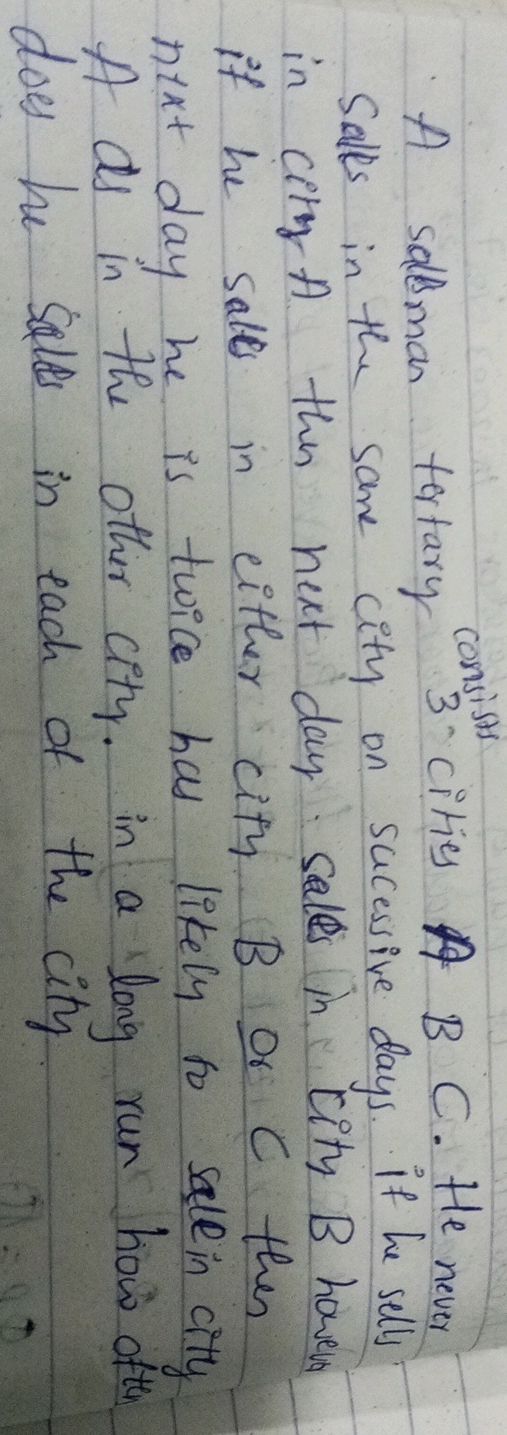 consists
A salesman tertary 3 cities A B C. He never
Sales in the same city on sucessive days. if he sells
in city A then next day sales in city B howeve
if he sales in either city B or C then
next day he is twice has likely to sale in city
A as in the other city. in a long run how often
does he sales in each of the city